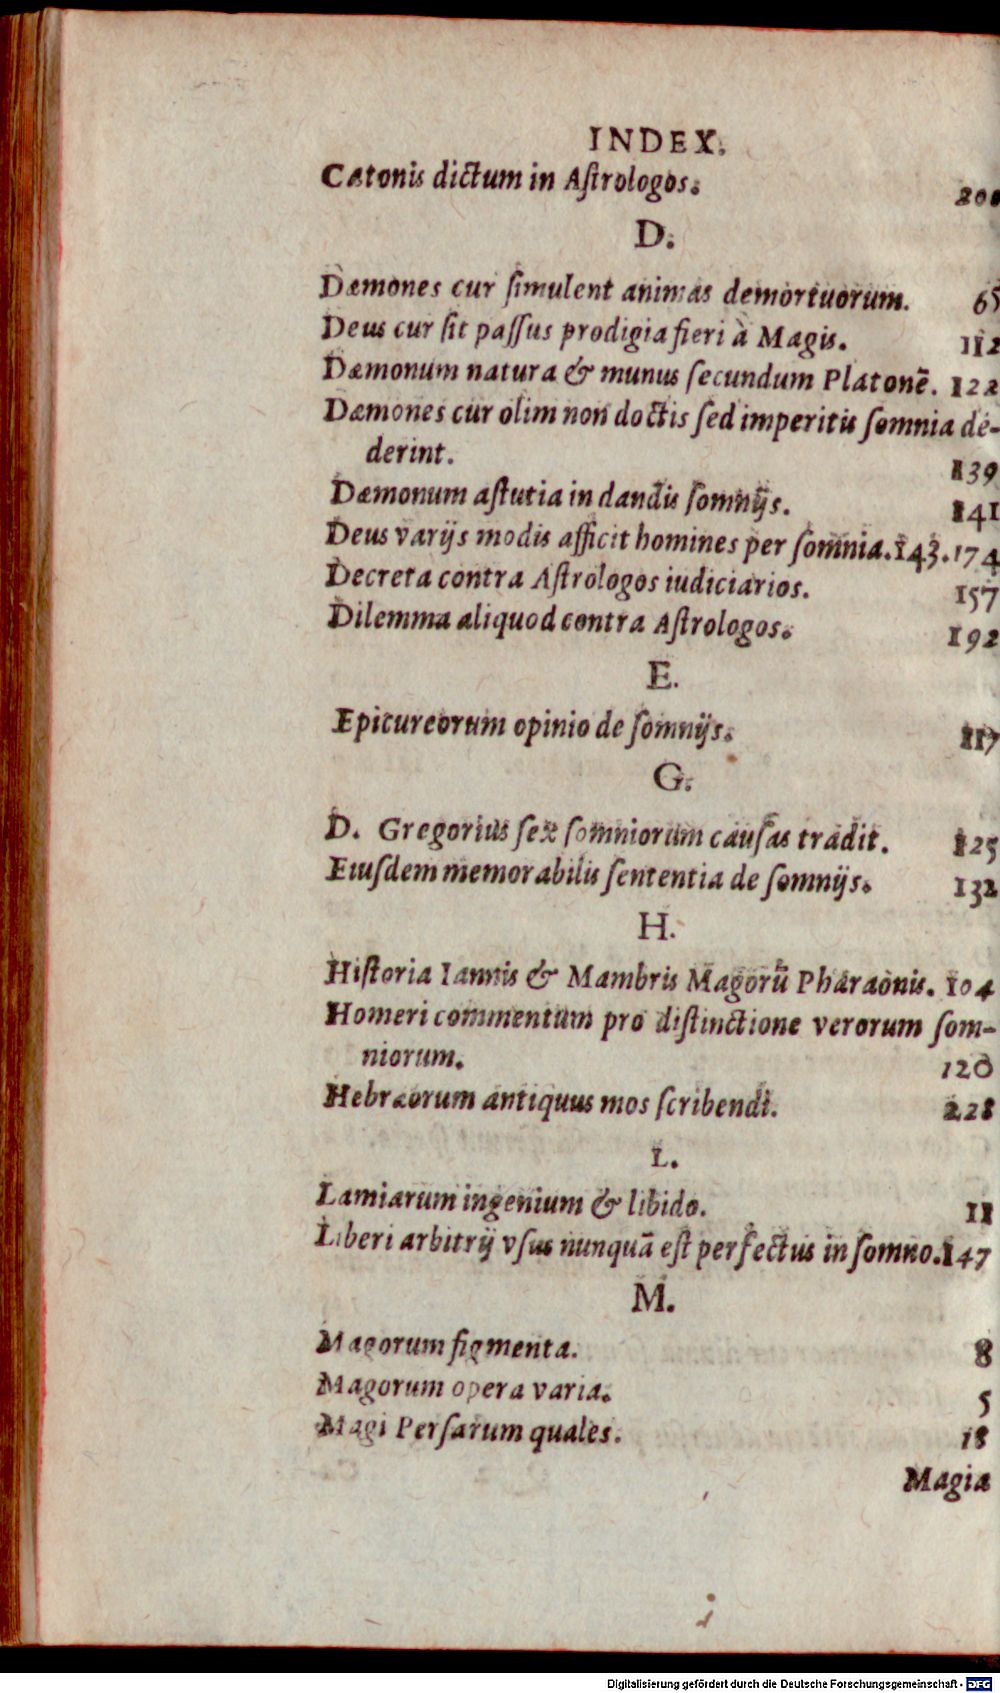 INDEX.
Catonis dictum in Aſtrologos. 200
D.
Dæmones cur ſimulent animas demortuorum. 65
Deus cur ſit paſſus prodigia fieri à Magis. 112
Dæmonum natura & munus ſecundum Platonē. 122
Dæmones cur olim non doctis ſed imperitis ſomnia de-
derint. 139
Dæmonum aſtutia in dandis ſomnijs. 141
Deus varijs modis afficit homines per ſomnia. 143. 174
Decreta contra Aſtrologos iudiciarios. 157
Dilemma aliquod contra Aſtrologos. 192
E.
Epicureorum opinio de ſomnijs. 117
G.
D. Gregorius ſex ſomniorum cauſas tradit. 125
Eiuſdem memorabilis ſententia de ſomnijs. 132
H.
Hiſtoria Iannis & Mambris Magorū Pharaonis. 104
Homeri commentum pro diſtinctione verorum ſom-
niorum. 120
Hebræorum antiquus mos ſcribendi. 228
L.
Lamiarum ingenium & libido. 11
Liberi arbitrij vſus nunquā eſt perfectus in ſomno. 147
M.
Magorum figmenta. 8
Magorum opera varia. 5
Magi Perſarum quales. 18
Magia
Digitalisierung gefördert durch die Deutsche Forschungsgemeinschaft - DFG